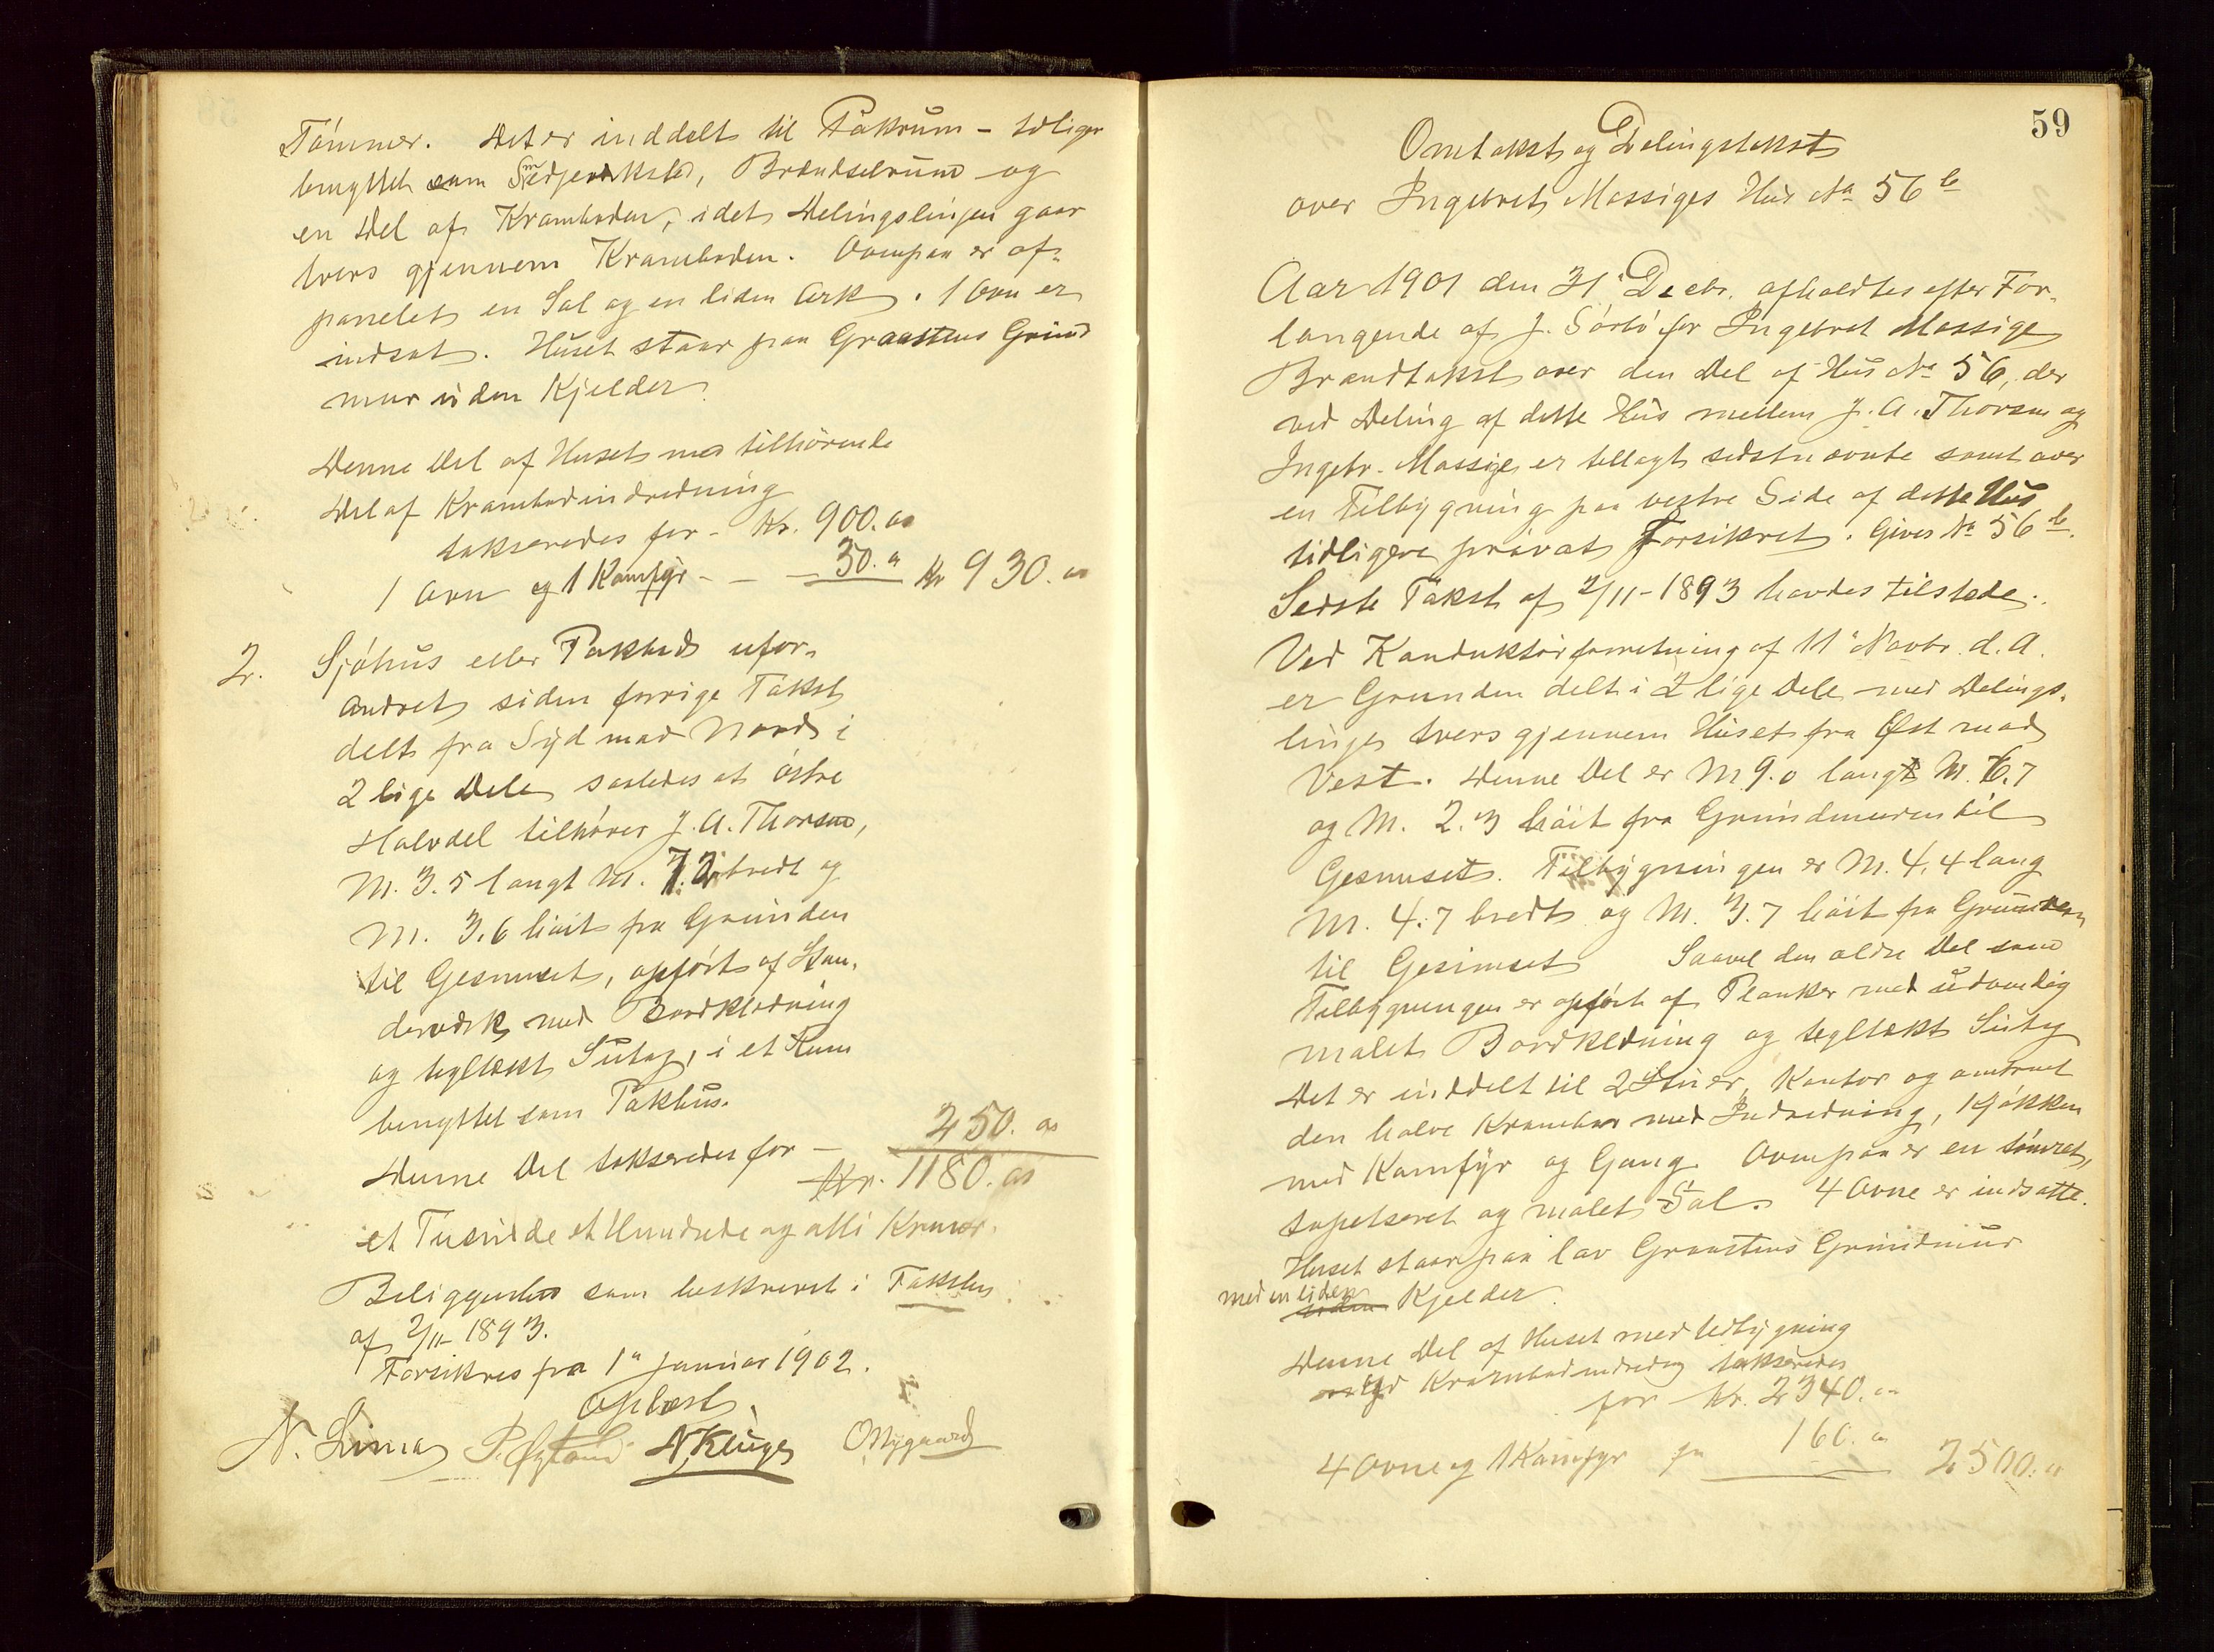 Tömmer. Det er inddelt til Pakrum – tidliger
benyttet som Smedjeverksted, Brændselrum og
en Del af Kramboden, idet Delingslinjen gaar
tvers gjennem Kramboden. Ovenpaa er af-
panelet en Sal og en liden Ark. 1 Ovn er
indsat. Huset staar paa Graastens Grund
mur uden Kjelder.
Denne Del af Huset med tilhörende
Del af Krambodindredning
takseredes for – Kr. 900.00
1 Ovn og 1 Komfyr – – – 30.00 Kr 930.00
2. Sjöhus eller Pakhus ufor-
andret siden forrige Takst
delt fra Syd mod Nord i
2 lige Dele saaledes at östre
Halvdel tilhörer J. A. Thorsen,
M. 3.5 langt M. 7.2 bredt og
M. 3.6 höit fra Grunden
til Gesimset, opfört af Stan-
derværk med Bordklædning
og tegltækt Sutag, i et Rum
benyttet som Pakhus.
Denne Del takseredes for – 250.00
Kr. 1180.00
et Tusinde et Hundrede og atti Kroner.
Beliggenhed som beskrevet i Taksten
af 2/11 1893.
Forsikres fra 1ste Januar 1902.
Oplæst.
N. Lima P. Öglænd N. Kluge O. Nygaard
59
Omtakst og Delingstakst
over Ingebret Mossiges Hus No 56 b
Aar 1901 den 31. Decbr. afholdtes efter For-
langende af J. Sörbö for Ingebret Mossige
Brandtakst over den Del af Hus No 56, der
ved Deling af dette Hus mellem J. A. Thorsen og
Ingebr. Mossige er tillagt sidstnævnte samt over
en Tilbygning paa vestre Side af dette Hus
tidligere privat forsikret. Gives No 56 b.
Sidste Takst af 2/11-1893 havdes tilstede.
Ved Konduktörforretning af 11te Novbr. d. A.
er Grunden delt i 2 lige Dele med Delings-
linje tvers gjennem Huset fra Öst mod
Vest. Denne Del er M 9.0 langt M. 6.7
og M. 2.3 höit fra Grundmuren til
Gesimset. Tilbygningen er M. 4.4 lang
M. 4.7 bredt og M. 3.7 höit fra Grundmuren
til Gesimset Saavel den ældre Del som
Tilbygningen er opfört af Planker med udvendig
malet Bordklædning og tegltækt Sutag
Det er inddelt til 2 Stuer, Kontor og omtrent
den halve Krambod med Indredning, Kjökken
med Komfyr og Gang. Ovenpaa er en tömret,
tapetseret og malet Sal. 4 Ovne er indsatte.
Huset staar paa lav Graastens Grundmur
med en liden
uden Kjelder.
Denne Del af Huset med Udbygning
og Krambodindredng takseredes
for Kr. 2340.00
4 Ovne og 1 Komfyr for 160.00 2500.00